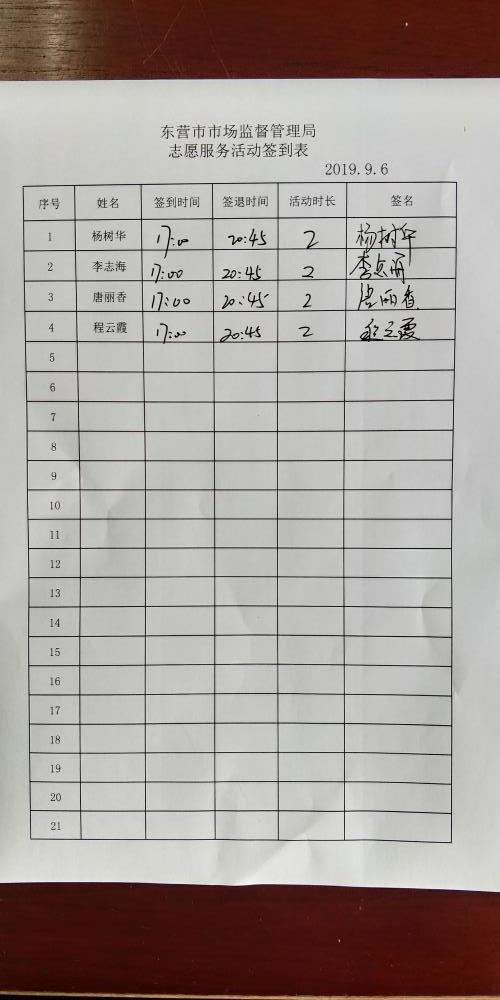 东营市市场监督管理局
志愿服务活动签到表
2019.9.6
序号 姓名 签到时间 签退时间 活动时长 签名
1 杨树华 17:00 20:45 2 杨树华
2 李志海 17:00 20:45 2 李志海
3 唐丽香 17:00 20:45 2 唐丽香
4 程云霞 17:00 20:45 2 程云霞
5
6
7
8
9
10
11
12
13
14
15
16
17
18
19
20
21